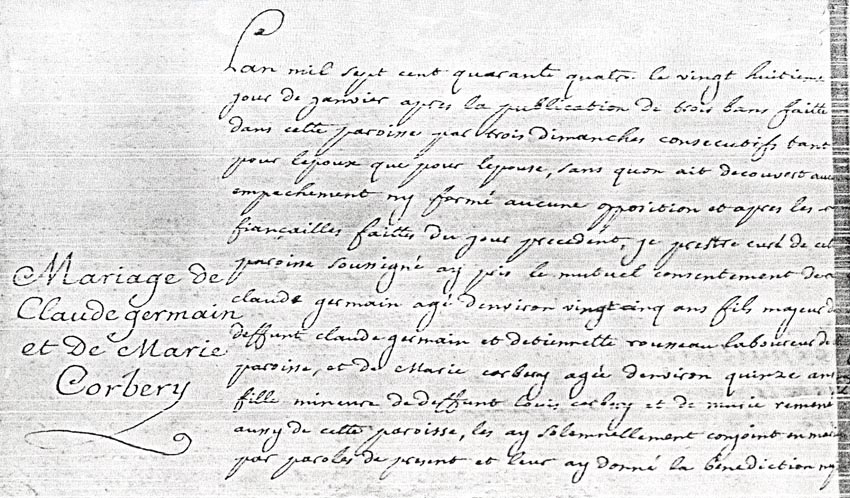 Mariage de
Claude germain
et De Marie
Corbery
Lan mil sept cent quarante quatre le vingt huitieme
jour de janvier apres la publication de trois bans faitte
dans cette paroisse par trois dimanches consecutifs tant
pour lepoux que pour lepouse, sans quon ait decouvert auc
empechement ny formé aucune opposition et apres les
françailles faittes du jour precedent, je prestre curé de cet
paroisse soussigné ay pris le mutuel consentement de
claude germain agé denviron vingt cinq ans fils majeur de
deffunt claude germain et detiennette rousseau laboureur de
paroisse, et de Marie corbery agée denviron quinze ans
fille mineure de deffunt Louis corbery et de marie remoné
aussy de cette paroisse, les ay solemnellement conjoint en mari
par paroles de present et leur ay donné la benediction nu